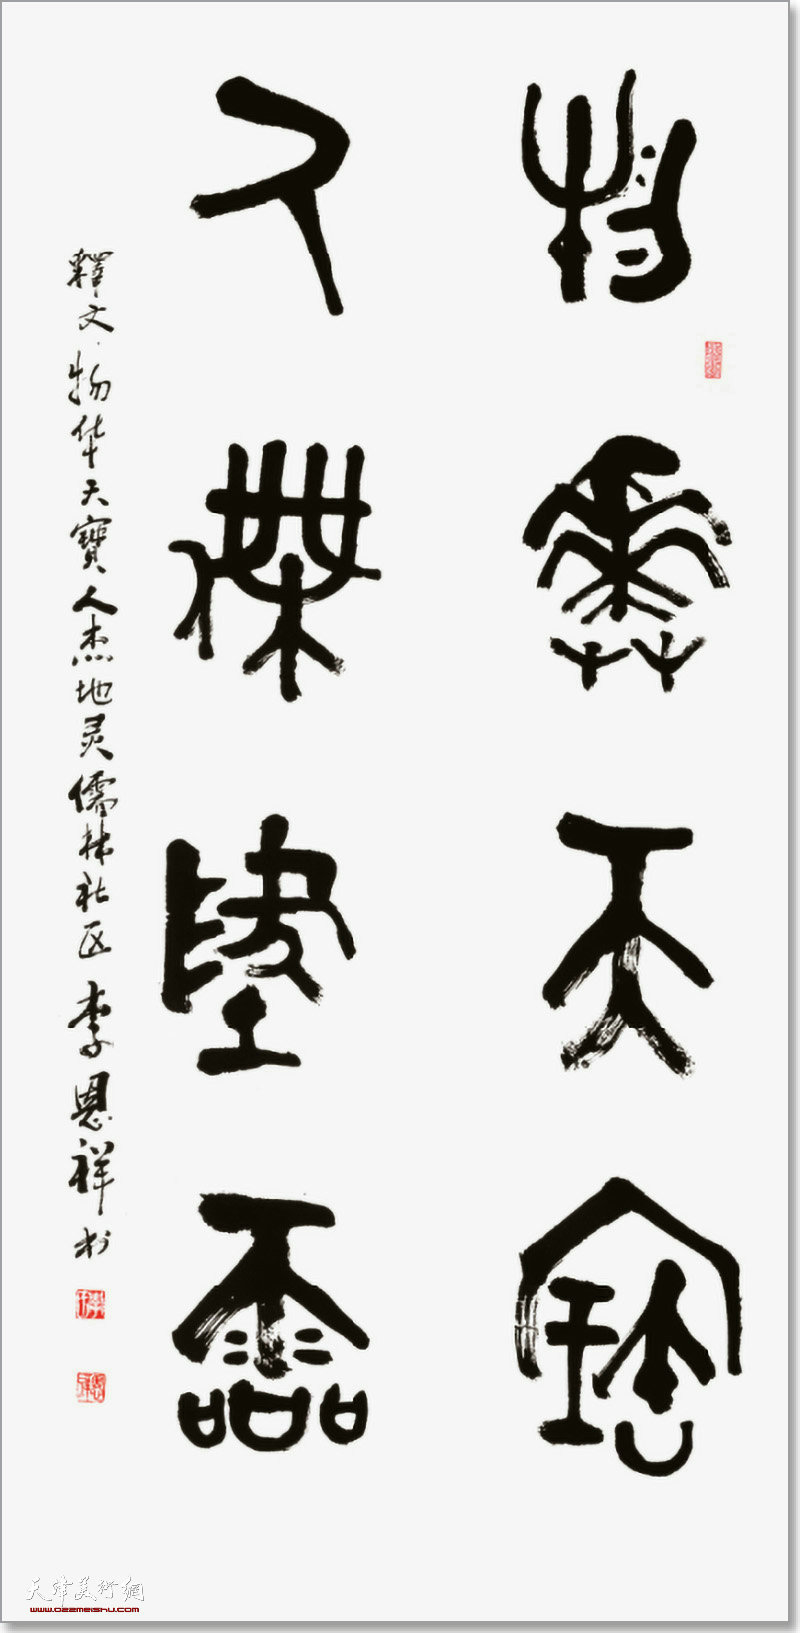 物華天寶
人傑地靈
釋文·物华天寶人杰地灵儒林社区李恩祥书
天津美術網
www.022meishu.com